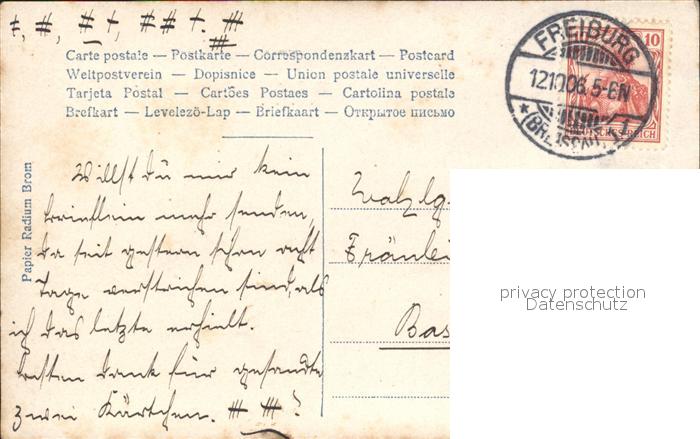 ‡, ‡‡, ‡ ‡, ‡‡ ‡. ‡‡
Carte postale — Postkarte — Correspondenzkart — Postcard
Weltpostverein — Dopisnice — Union postale universelle
Tarjeta Postal — Cartões Postaes — Cartolina postale
Brefkart — Levelező-Lap — Briefkaart — Открытое письмо
FREIBURG
12.10.06. 5-6N
* (BREISGAU) 1
10
DEUTSCHES REICH
Papier Radium Brom
Willst du mir kein
Brieflein mehr senden,
da seit gestern schon acht
Tage verstrichen sind, als
ich das letzte erhielt.
Besten Dank für gesandte
zwei Kärtchen.
Fräulei
Bas
privacy protection
Datenschutz